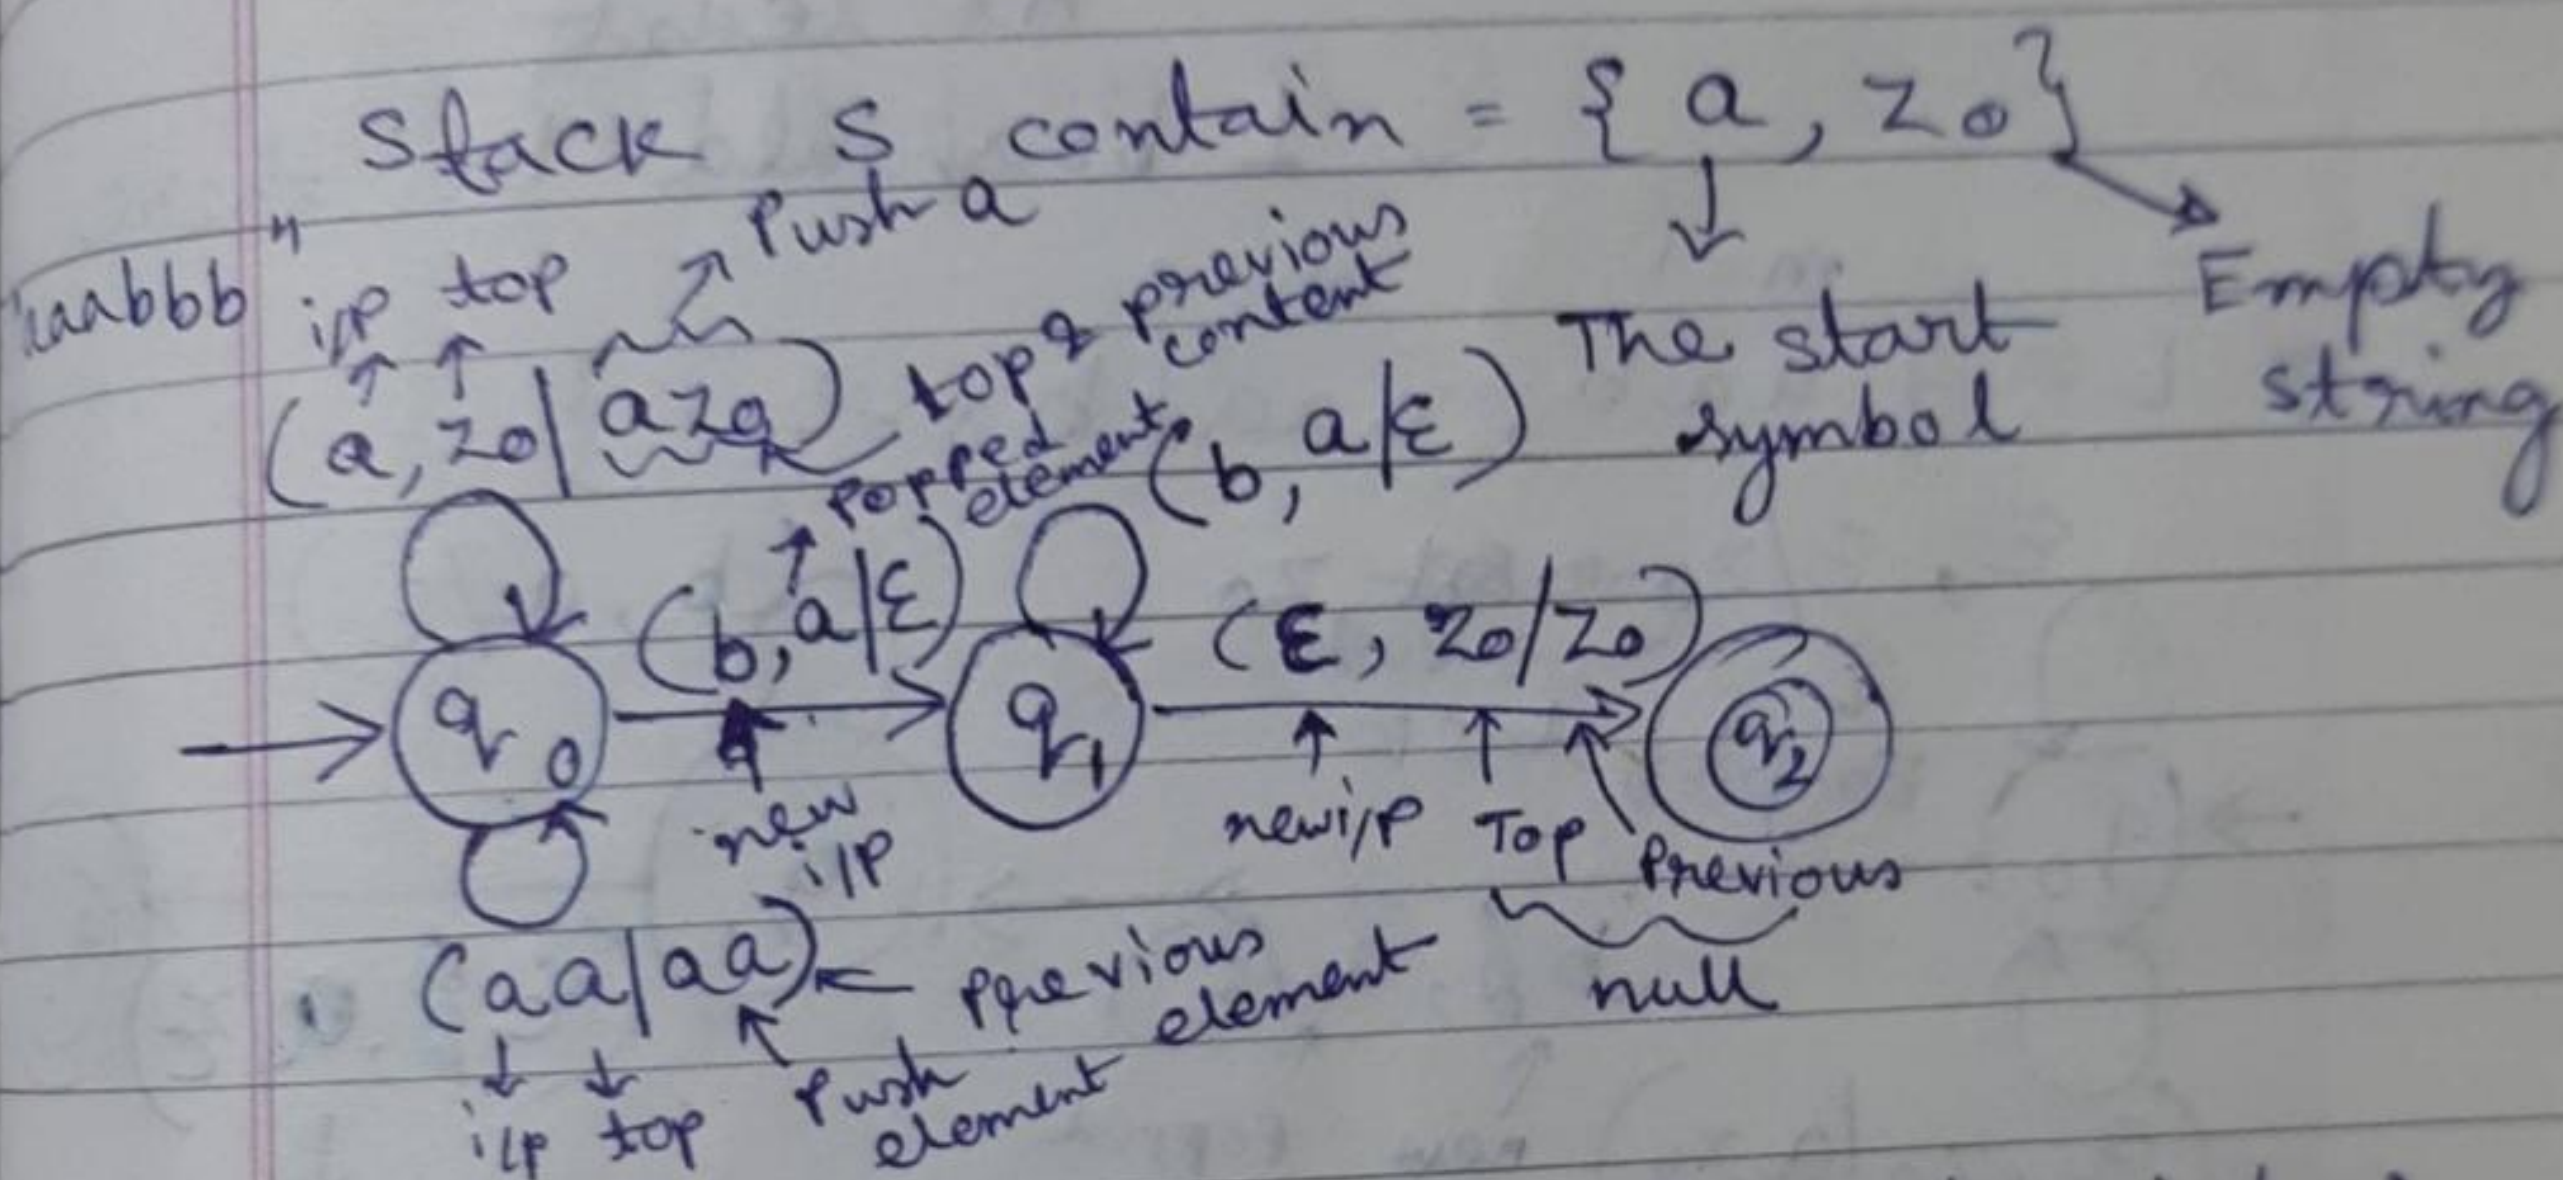 Stack S contain = { a, z0 }
Push a
"aaabbb"
i/p top
top & previous
content
The start
symbol
Empty
string
(a, z0 | az0)
popped
element
(b, a/ε)
(b, a/ε)
(ε, z0/z0)
q0
q1
q2
new
i/p
new i/p Top Previous
null
(aa/aa)
previous
element
i/p top
Push
element